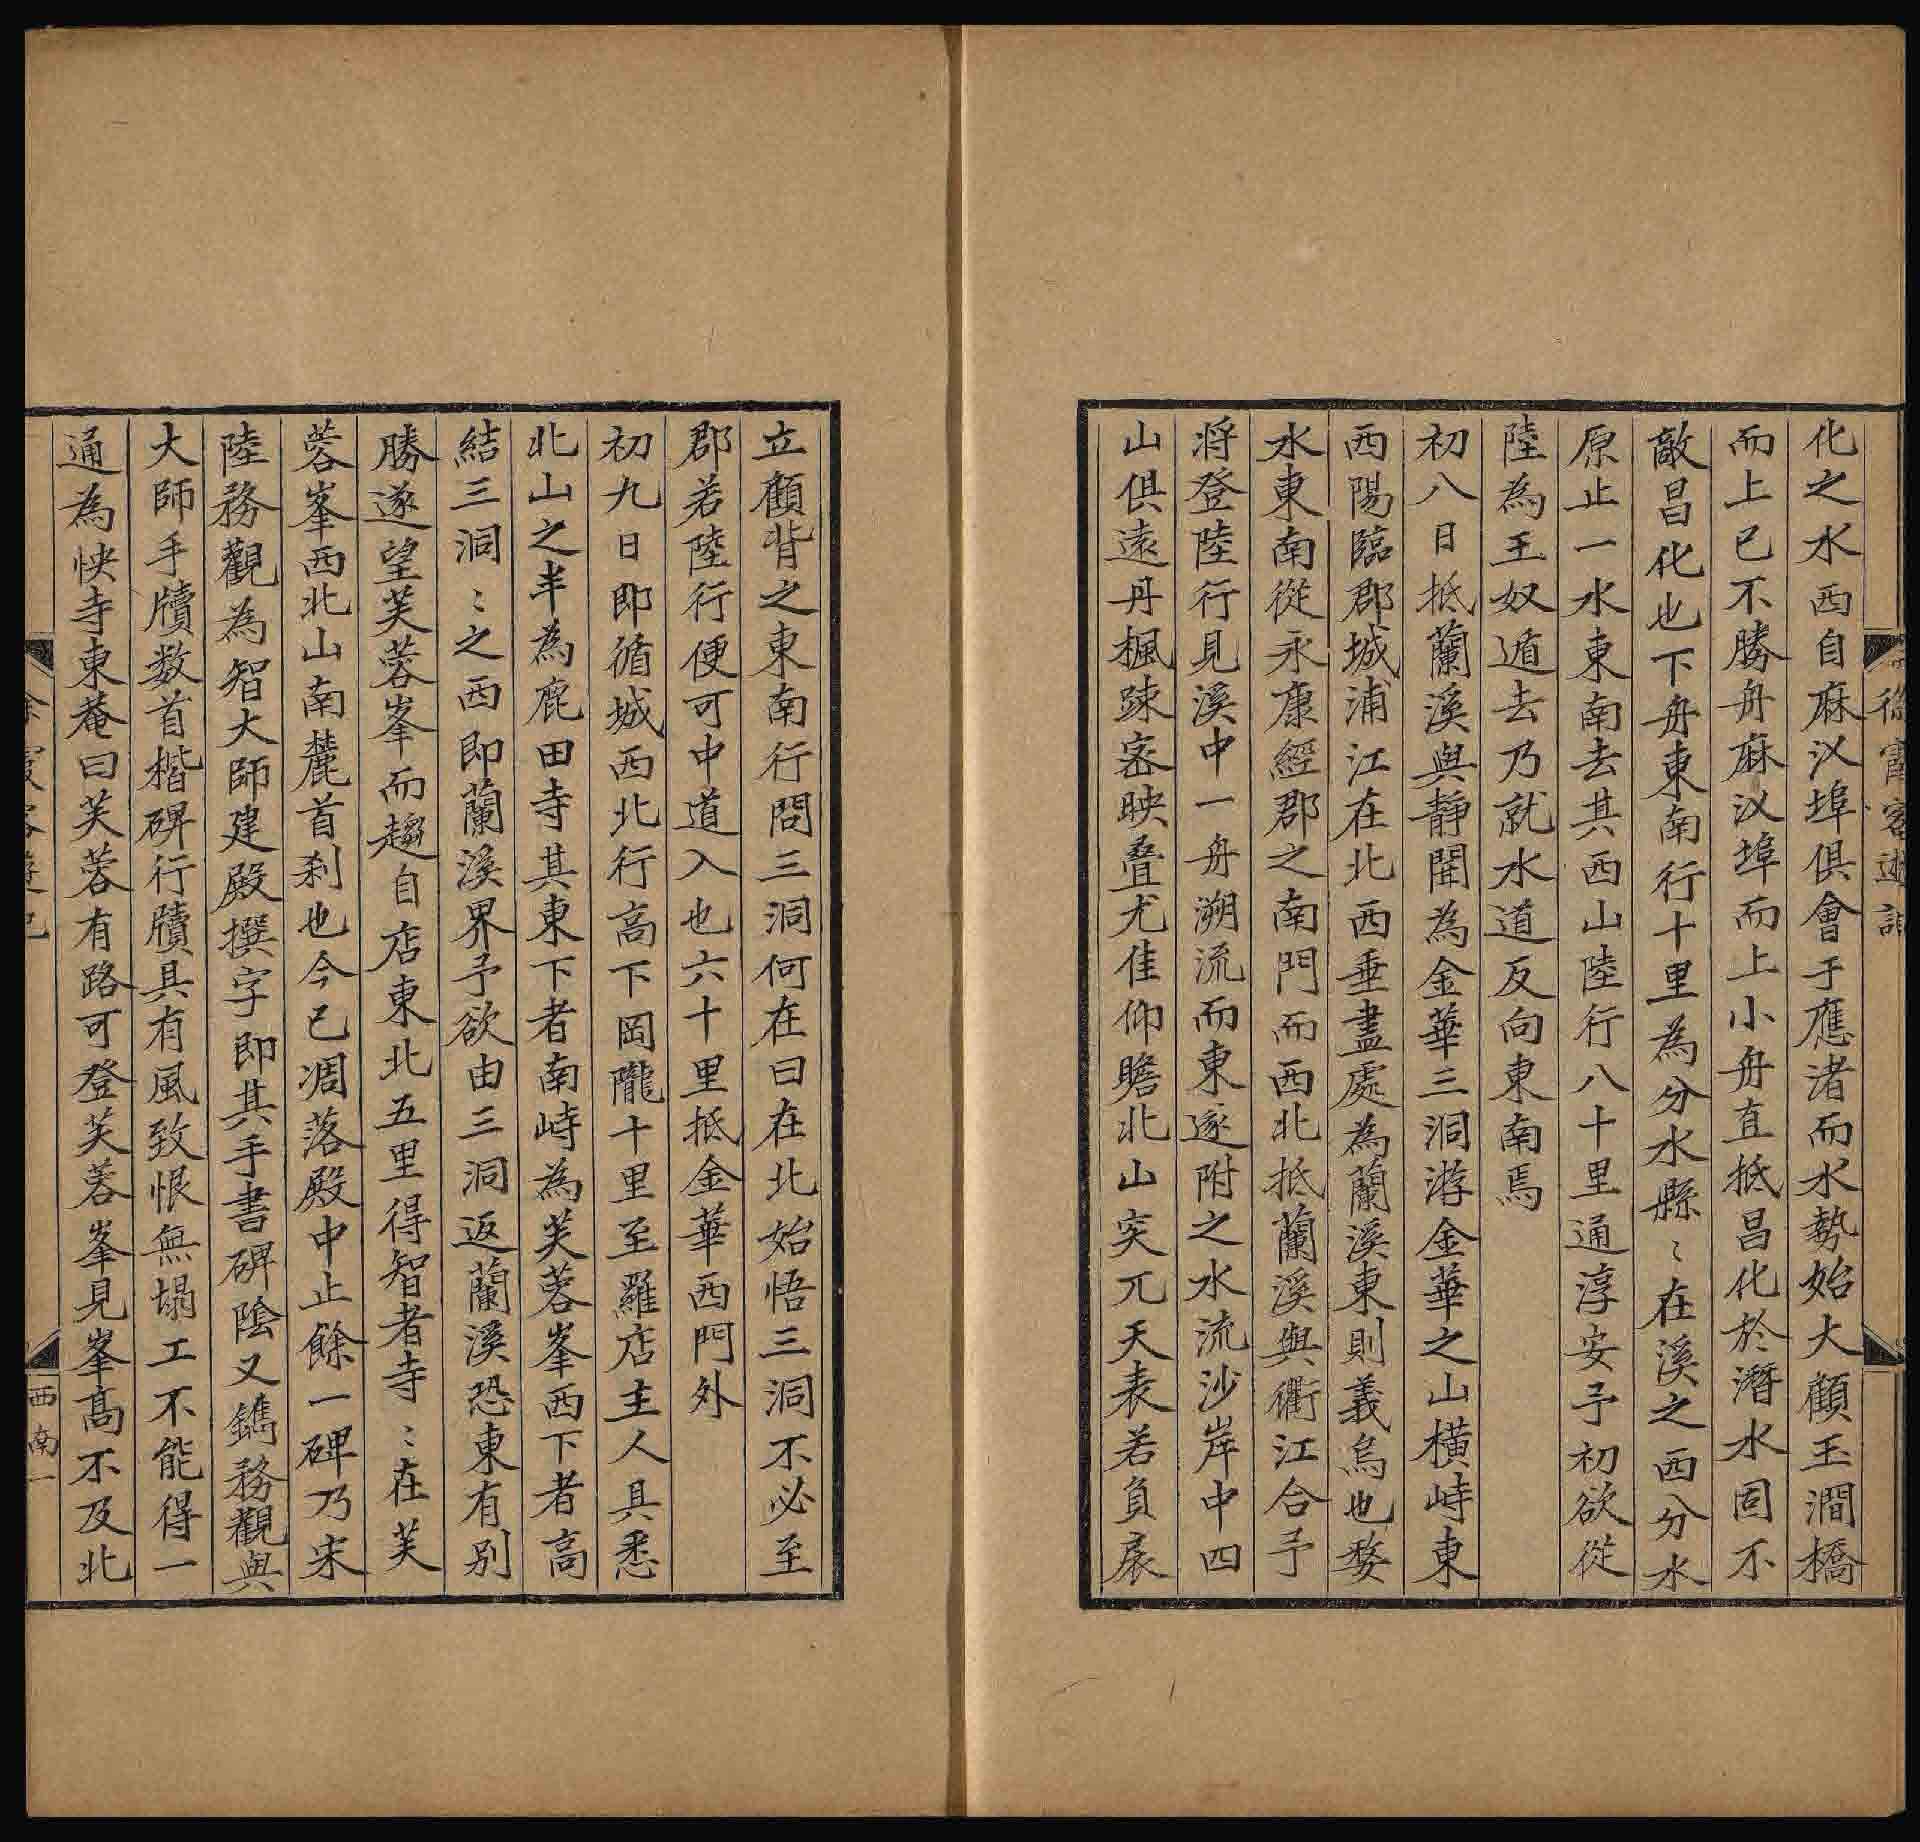 徐霞客遊記
化之水西自麻汊埠俱會于應渚而水勢始大顧玉澗橋
而上已不勝舟麻汊埠而上小舟直抵昌化於潛水固不
敵昌化也下舟東南行十里為分水縣〻在溪之西分水
原止一水東南去其西山陸行八十里通淳安予初欲從
陸為王奴遁去乃就水道反向東南焉
初八日抵蘭溪與靜聞為金華三洞游金華之山橫峙東
西陽臨郡城浦江在北西垂盡處為蘭溪東則義烏也婺
水東南從永康經郡之南門而西北抵蘭溪與衢江合予
將登陸行見溪中一舟溯流而東遂附之水流沙岸中四
山俱遠丹楓踈密映叠尤佳仰瞻北山突兀天表若負扆
立顧背之東南行問三洞何在曰在北始悟三洞不必至
郡若陸行便可中道入也六十里抵金華西門外
初九日即循城西北行高下岡隴十里至羅店主人具悉
北山之半為鹿田寺其東下者南峙為芙蓉峯西下者高
結三洞〻之西即蘭溪界予欲由三洞返蘭溪恐東有別
勝遂望芙蓉峯而趨自店東北五里得智者寺〻在芙
蓉峯西北山南麓首刹也今已凋落殿中止餘一碑乃宋
陸務觀為智大師建殿撰字即其手書碑陰又鐫務觀與
大師手牘数首楷碑行牘具有風致恨無塌工不能得一
通為怏寺東菴曰芙蓉有路可登芙蓉峯見峯高不及北
徐霞客遊記
西南一